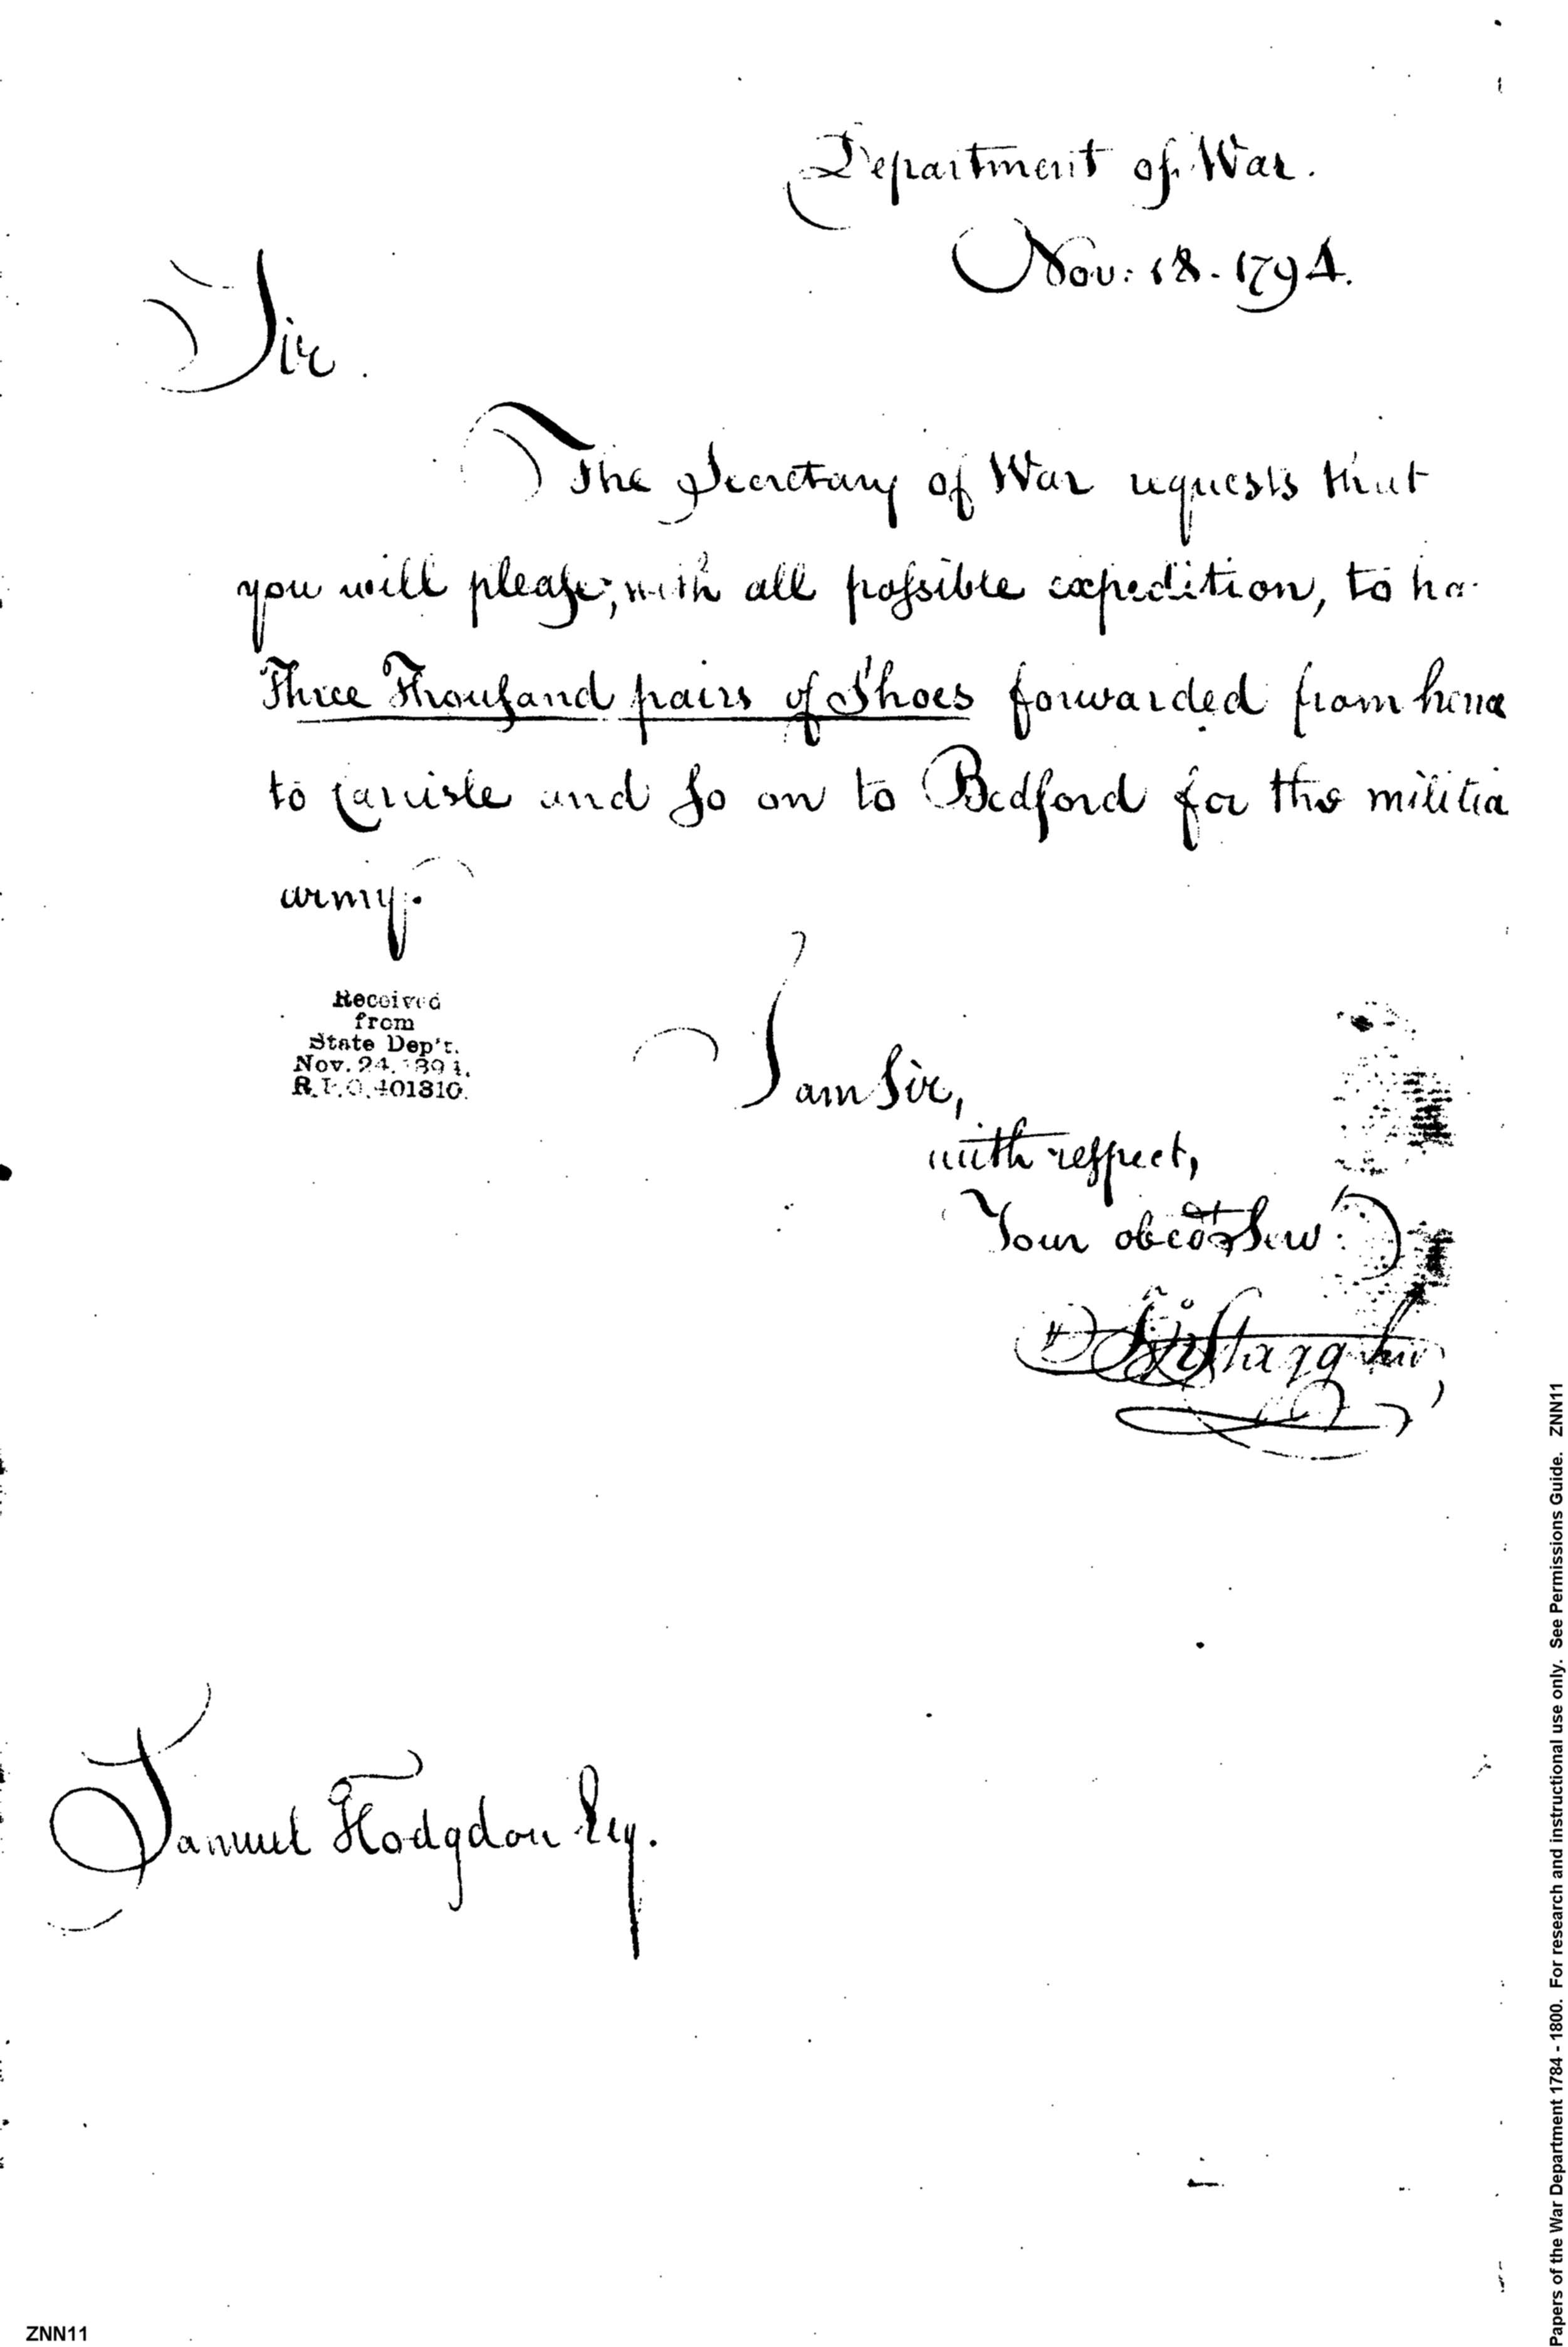 Department of War.
Nov: 18. 1794.
Sir.
The Secretary of War requests that
you will please, with all possible expedition, to ha
Three Thousand pairs of Shoes forwarded from hence
to Carlisle and so on to Bedford for the militia
army.
Received
from
State Dep't.
Nov. 24. 1894.
R.&P.O. 401810.
I am Sir,
with respect,
Your obed Serv
Jno Stagg Junr
Samuel Hodgdon Esq.
ZNN11
Papers of the War Department 1784 - 1800. For research and instructional use only. See Permissions Guide. ZNN11